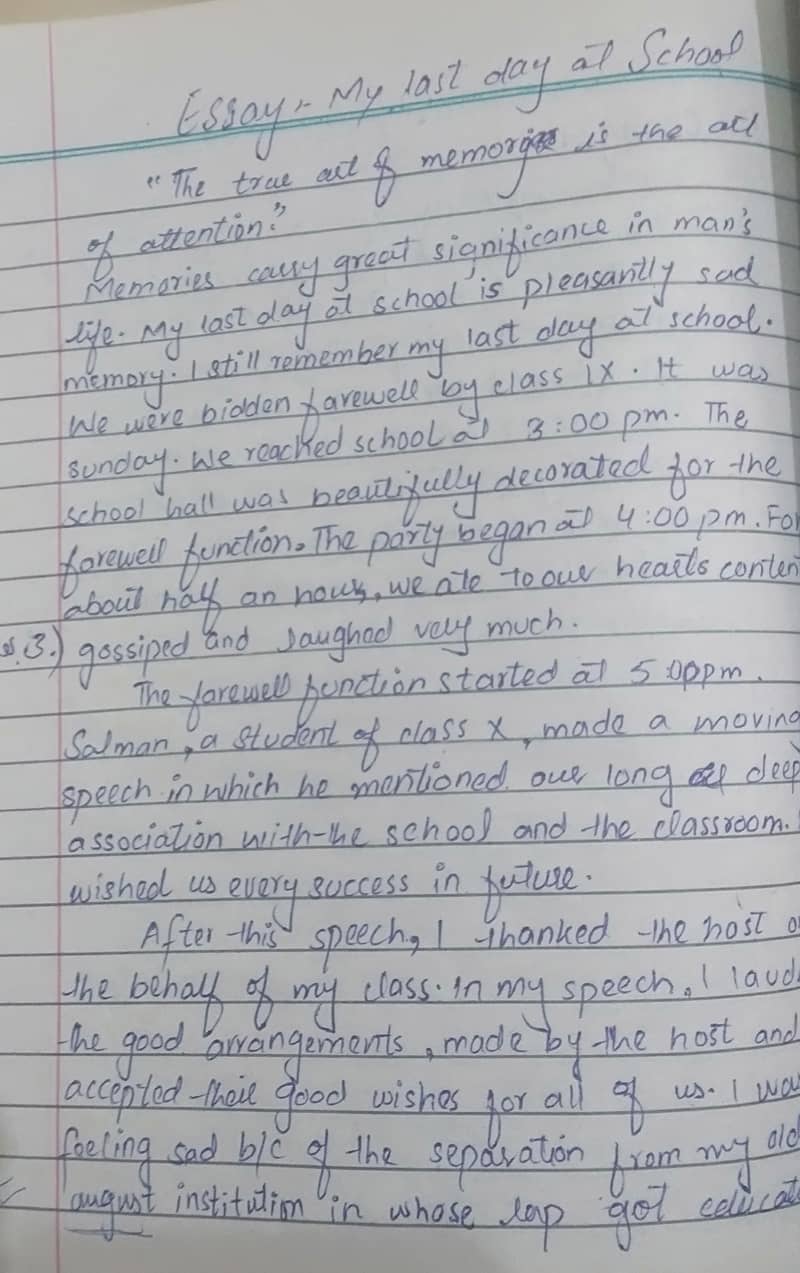 Essay:- My last day at School
"The true art of memory is the art
of attention."
Memories carry great significance in man's
life. My last day at school is pleasantly sad
memory. I still remember my last day at school.
We were bidden farewell by class IX. It was
sunday. We reached school at 3:00 pm. The
school hall was beautifully decorated for the
farewell function. The party began at 4:00 pm. For
about half an hour, we ate to our hearts conten
3.) gossiped and laughed very much.
The farewell function started at 5 00pm.
Salman, a student of class X, made a moving
speech in which he mentioned our long deep
association with the school and the classroom.
wished us every success in future.
After this speech, I thanked the host o
the behalf of my class. In my speech, I laud
the good arrangements, made by the host and
accepted their good wishes for all of us. I wa
feeling sad b/c of the separation from my old
august institution in whose lap got educat